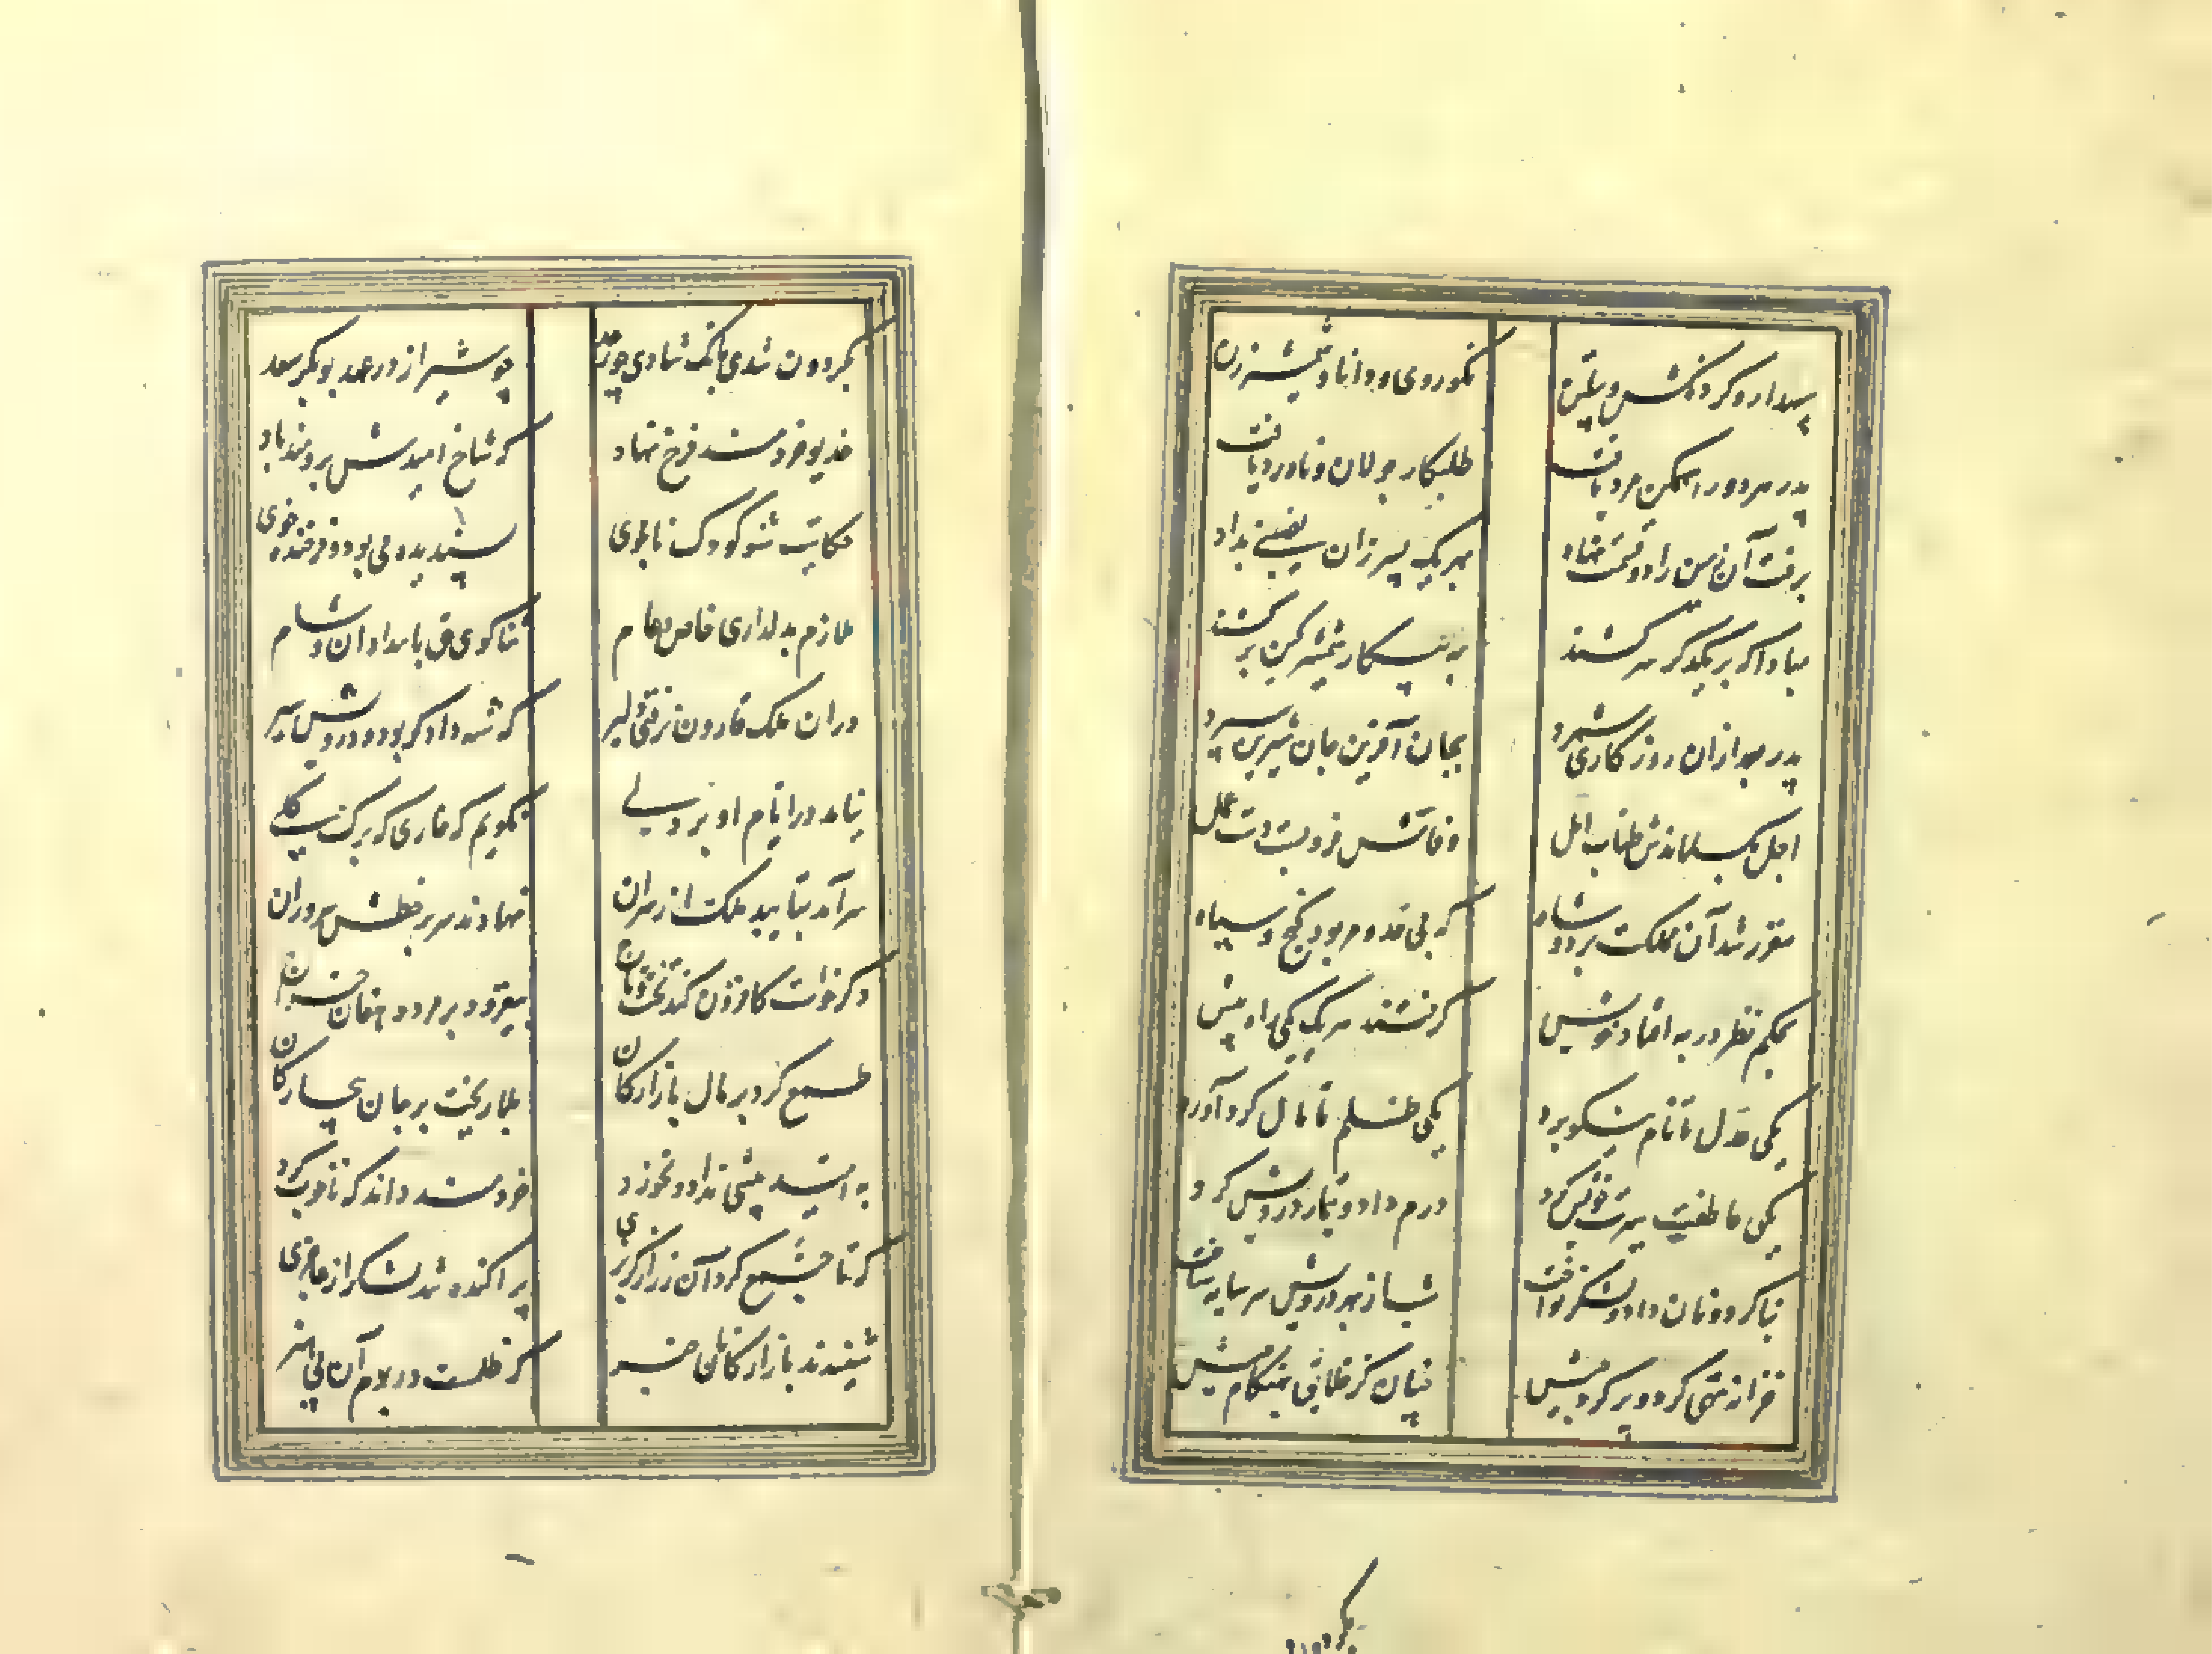 سپهدار و گردنکش و پیلتن
نکوروی و دانا و شمشیرزن
پدر هر دو را سهمگین مرد یافت
طلبکار جولان و ناورد یافت
برفت آن زمین را دو قسمت نهاد
بهر یک پسر زان نصیبی بداد
مبادا که بر یکدگر سر کشند
به پیکار شمشیر کین برکشند
پدر بعد ازان روزگاری شمرد
بجان آفرین جان شیرین سپرد
اجل بکسلاندش طناب امل
وفاتش فرو بست دست عمل
مقرر شد آن مملکت بر دو شاه
که بی حد و مر بود گنج و سپاه
بحکم نظر در به افتاد خویش
گرفتند هر یک یکی راه پیش
یکی عدل تا نام نیکو برد
یکی ظلم تا مال گرد آورد
یکی عاطفت سیرت خویش کرد
درم داد و تیمار درویش کرد
بنا کرد و نان داد و لشکر نواخت
شب از بهر درویش سرمایه ساخت
خزانه تهی کرد و پر کرد جیش
چنان کز خلایق بهنگام عیش
بگردون
بگردون شدی بانگ شادی چو رعد
چو شیراز در عهد بوبکر سعد
خدیو خردمند فرخ نهاد
که شاخ امیدش برومند باد
حکایت شنو کودک نامجوی
پسندیده پی بود و فرخنده خوی
ملازم بدلداری خاص و عام
ثناگوی حق بامدادان و شام
دران ملک قارون نرفتی دلیر
که شه دادگر بود و درویش سیر
نیامد در ایام او بر دلی
نگویم که خاری که برگ گلی
سرآمد بتایید ملک از سران
نهادند سر بر خطش سروران
دگر خواست کافزون کند تخت و تاج
بیفزود بر مرد دهقان خراج
طمع کرد بر مال بازارگان
بلا ریخت بر جان بیچارگان
به امید بیشی نداد و نخورد
خردمند داند که ناخوب کرد
که تا جمع کرد آن زر از گربزی
پراکنده شد لشکر از عاجزی
شنیدند بازارگانان خبر
که ظلمست در بوم آن بی هنر